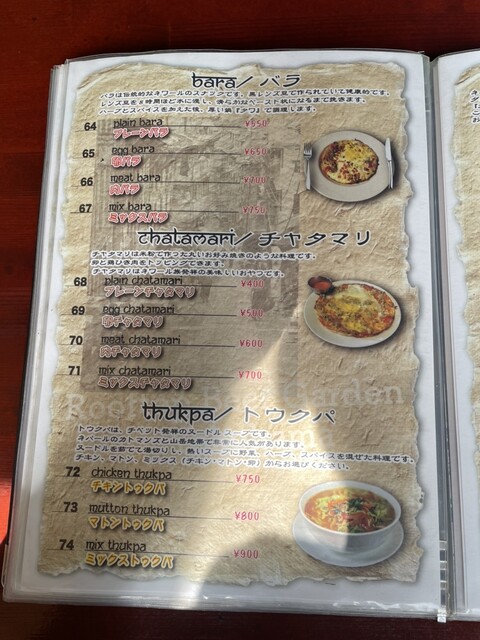 bara/バラ
バラは伝統的なネワールのスナックです。黒レンズ豆で作られていて健康的です。
レンズ豆を8時間ほど水に浸し、滑らかなペースト状になるまで挽きます。
ハーブとスパイスを加えた後、厚い鍋『タワ』で調理します。
64 plain bara ¥550
プレーンバラ
65 egg bara ¥650
卵バラ
66 meat bara ¥700
肉バラ
67 mix bara ¥750
ミックスバラ
chatamari/チャタマリ
チャタマリは米粉で作った丸いお好み焼きのような料理です。
卵と鶏ひき肉をトッピングできます。
チャタマリはネワール族発祥の美味しいおやつです。
68 plain chatamari ¥400
プレーンチャタマリ
69 egg chatamari ¥500
卵チャタマリ
70 meat chatamari ¥600
肉チャタマリ
71 mix chatamari ¥700
ミックスチャタマリ
thukpa/トウクパ
トウクパは、チベット発祥のヌードルスープです。
ネパールのカトマンズと山岳地帯で非常に人気があります。
ヌードルを茹でて湯切りし、熱いスープに野菜、ハーブ、スパイスを混ぜた料理です。
チキン、マトン、ミックス（チキン・マトン・卵）からお選びください。
72 chicken thukpa ¥750
チキントゥクパ
73 mutton thukpa ¥800
マトントゥクパ
74 mix thukpa ¥900
ミックストゥクパ